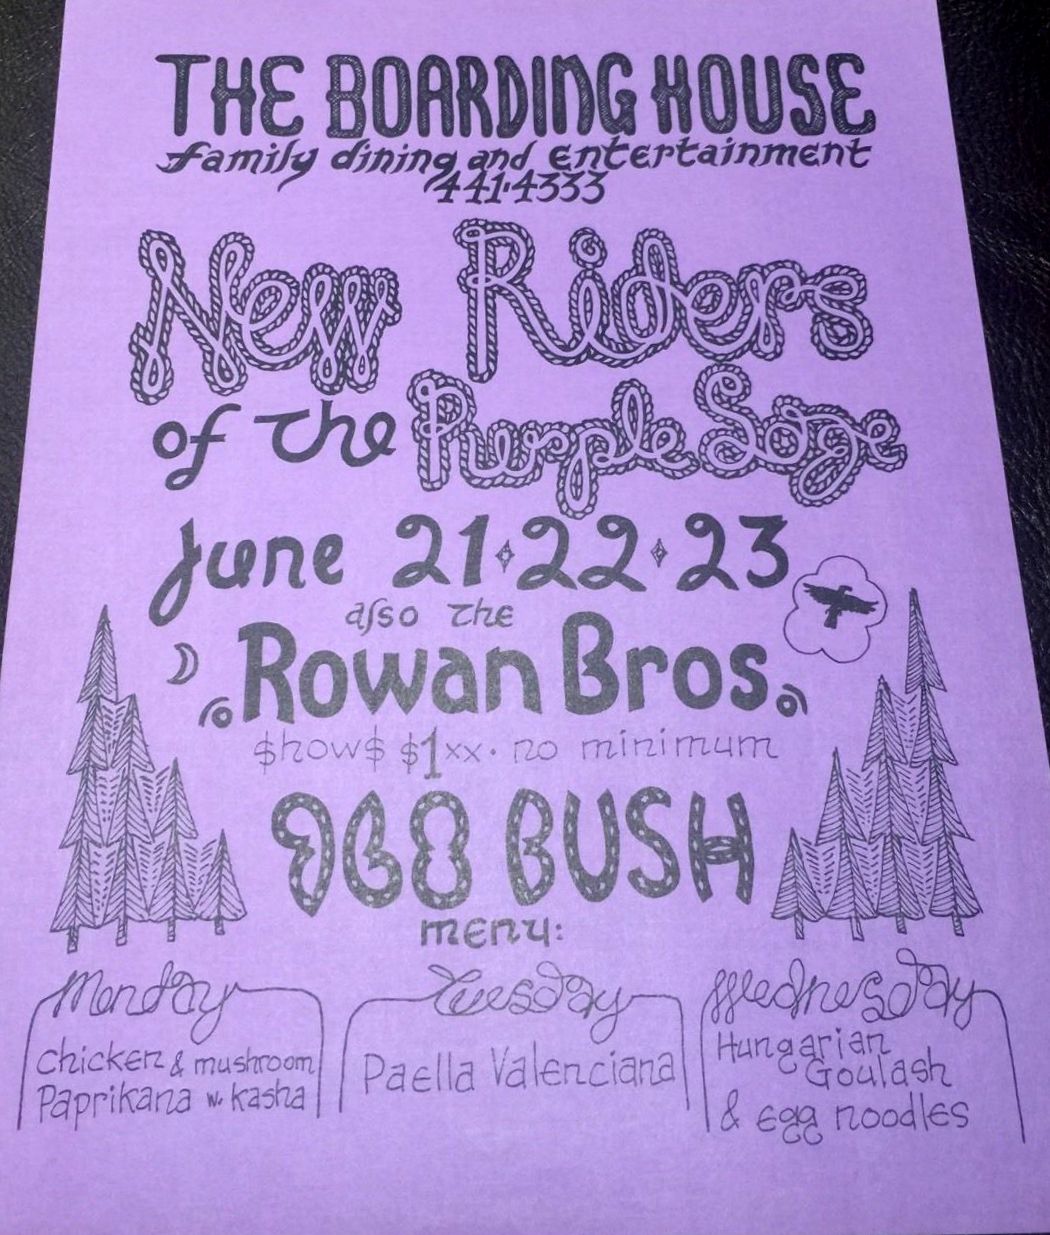 THE BOARDING HOUSE
family dining and entertainment
441·4333
New Riders
of the Purple Sage
June 21·22·23
also the
Rowan Bros.
$how$ $1xx · no minimum
960 BUSH
menu:
Monday
chicken & mushroom
Paprikana w. kasha
Tuesday
Paella Valenciana
Wednesday
Hungarian
Goulash
& egg noodles